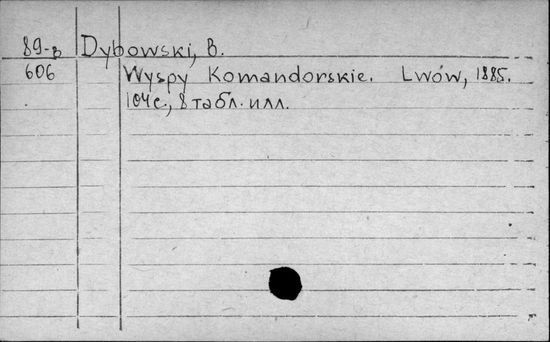 89-в Dybowski, B.
606 Wyspy Komandorskie. Lwów, 1885.
104с., 8 табл. илл.